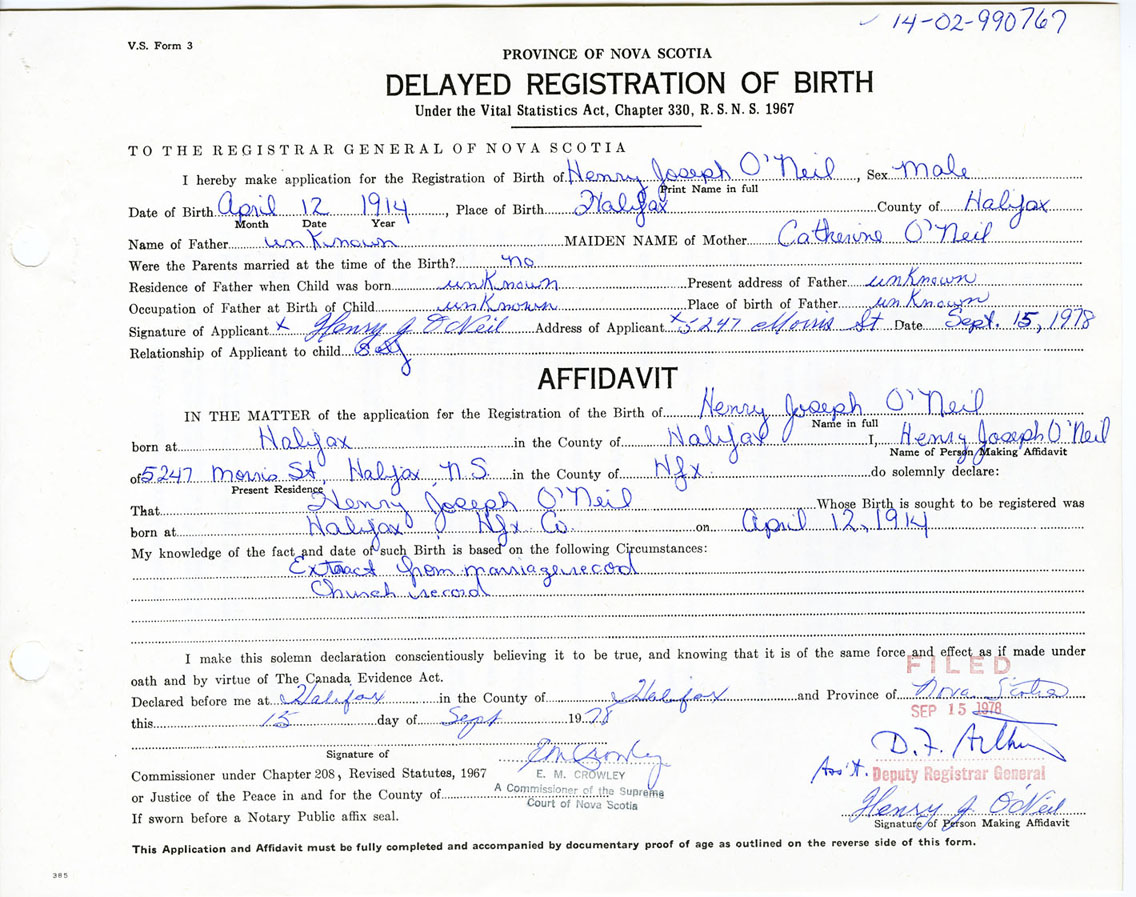 14-02-990767
V.S. Form 3
PROVINCE OF NOVA SCOTIA
DELAYED REGISTRATION OF BIRTH
Under the Vital Statistics Act, Chapter 330, R.S.N.S. 1967
TO THE REGISTRAR GENERAL OF NOVA SCOTIA
I hereby make application for the Registration of Birth of Henry Joseph O'Neil, Sex Male
Print Name in full
Date of Birth April 12 1914, Place of Birth Halifax County of Halifax
Month Date Year
Name of Father unKnown MAIDEN NAME of Mother Catherine O'Neil
Were the Parents married at the time of the Birth? no
Residence of Father when Child was born unKnown Present address of Father unKnown
Occupation of Father at Birth of Child unKnown Place of birth of Father unKnown
Signature of Applicant x Henry J O'Neil Address of Applicant x 5247 Morris St Date Sept. 15, 1978
Relationship of Applicant to child self
AFFIDAVIT
IN THE MATTER of the application for the Registration of the Birth of Henry Joseph O'Neil
Name in full
born at Halifax in the County of Halifax I, Henry Joseph O'Neil
Name of Person Making Affidavit
of 5247 Morris St, Halifax, N.S. in the County of Hfx do solemnly declare:
Present Residence
That Henry Joseph O'Neil Whose Birth is sought to be registered was
born at Halifax, Hfx Co. on April 12, 1914
My knowledge of the fact and date of such Birth is based on the following Circumstances:
Extract from marriage record
Church record
I make this solemn declaration conscientiously believing it to be true, and knowing that it is of the same force and effect as if made under
oath and by virtue of The Canada Evidence Act.
FILED
Declared before me at Halifax in the County of Halifax and Province of Nova Scotia
SEP 15 1978
this 15 day of Sept 1978
D.F. Arthur
Signature of
EMCrowley
Commissioner under Chapter 208, Revised Statutes, 1967
E. M. CROWLEY
Ass't. Deputy Registrar General
or Justice of the Peace in and for the County of
A Commissioner of the Supreme
Court of Nova Scotia
Henry J O'Neil
If sworn before a Notary Public affix seal.
Signature of Person Making Affidavit
This Application and Affidavit must be fully completed and accompanied by documentary proof of age as outlined on the reverse side of this form.
385